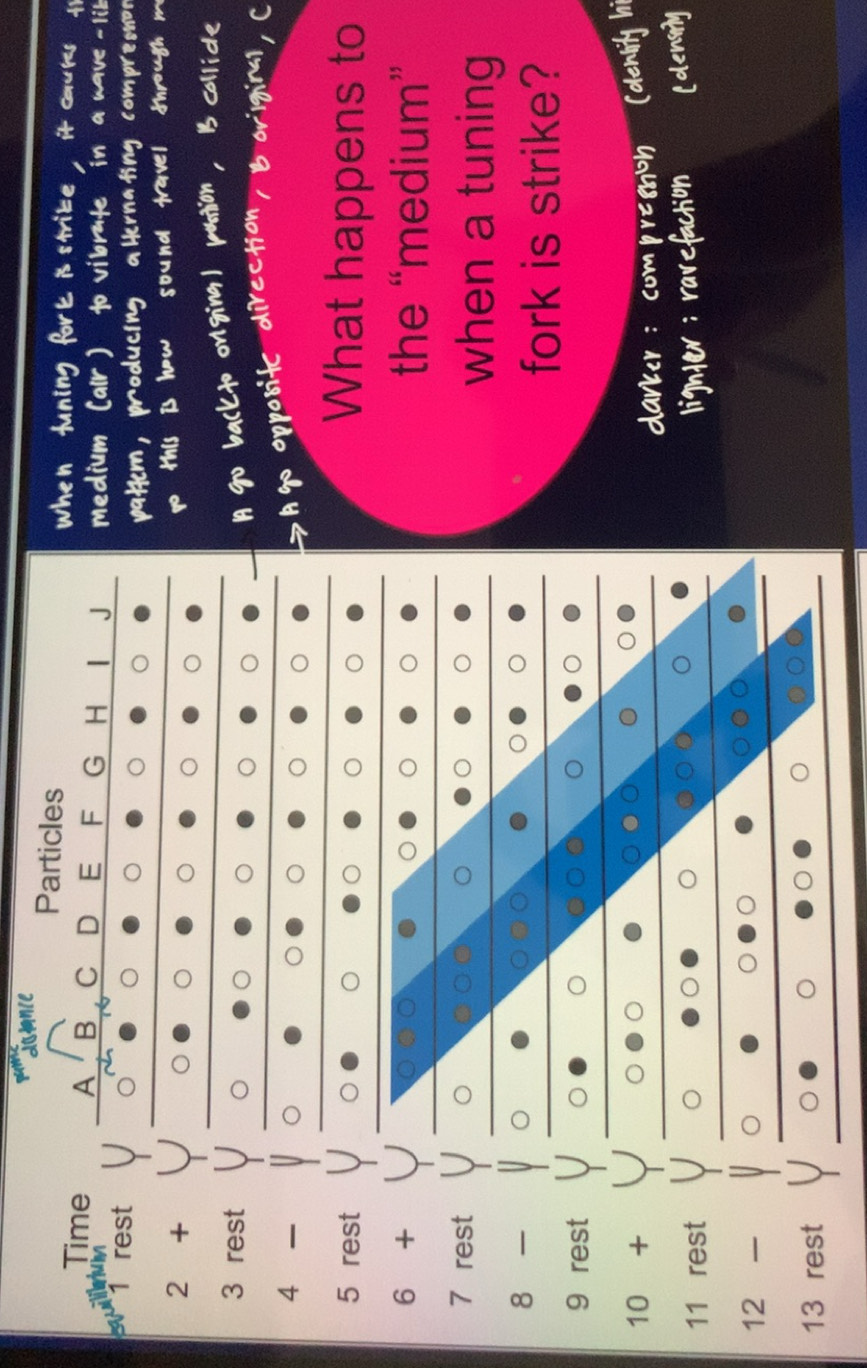 same
distance
Particles
Time A B C D E F G H I J
equilibrium
1 rest
2 +
3 rest
4 –
5 rest
6 +
7 rest
8 –
9 rest
10 +
11 rest
12 –
13 rest
when tuning fork is strike, it causes
medium (air) to vibrate in a wave-
pattern, producing alternating compression
this is how sound travel through
A go back to original position, B collide
→ A go opposite direction, B original, C
What happens to
the “medium”
when a tuning
fork is strike?
darker : compression (density
lighter : rarefaction (density